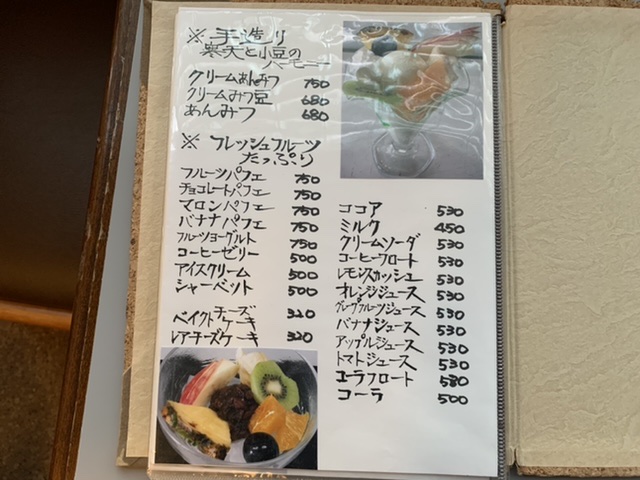 ※ 手造り
寒天と小豆の
ハーモニー
クリームあんみつ 750
クリームみつ豆 680
あんみつ 680
※ フレッシュフルーツ
たっぷり
フルーツパフェ 750
チョコレートパフェ 750
マロンパフェ 750
バナナパフェ 750
フルーツヨーグルト 750
コーヒーゼリー 500
アイスクリーム 500
シャーベット 500
ベイクトチーズケーキ 320
レアチーズケーキ 320
ココア 530
ミルク 450
クリームソーダ 530
コーヒーフロート 530
レモンスカッシュ 530
オレンジジュース 530
グレープフルーツジュース 530
バナナジュース 530
アップルジュース 530
トマトジュース 530
コーラフロート 580
コーラ 500